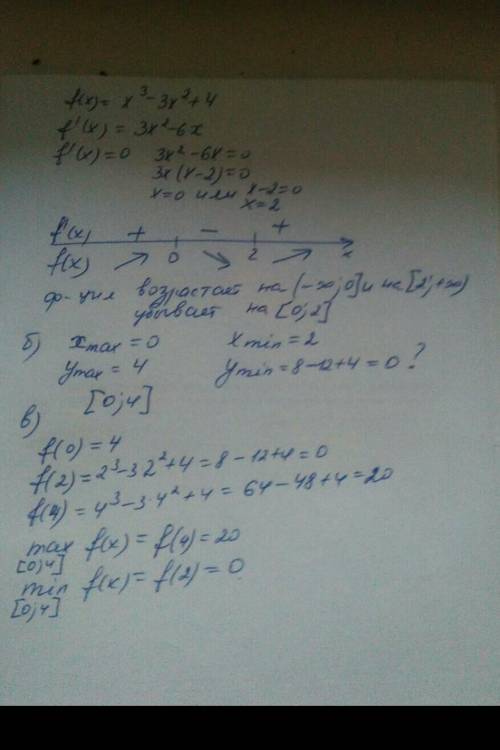 f(x) = x³ - 3x² + 4
f'(x) = 3x² - 6x
f'(x) = 0 3x² - 6x = 0
3x(x - 2) = 0
x = 0 или x - 2 = 0
x = 2
f'(x) + - +
0 2 x
f(x) ↗ ↘ ↗
ф-ция возрастает на (-∞; 0] и на [2; +∞)
убывает на [0; 2]
б) x max = 0 x min = 2
y max = 4 y min = 8 - 12 + 4 = 0 ?
в) [0; 4]
f(0) = 4
f(2) = 2³ - 3·2² + 4 = 8 - 12 + 4 = 0
f(4) = 4³ - 3·4² + 4 = 64 - 48 + 4 = 20
max f(x) = f(4) = 20
[0; 4]
min f(x) = f(2) = 0
[0; 4]